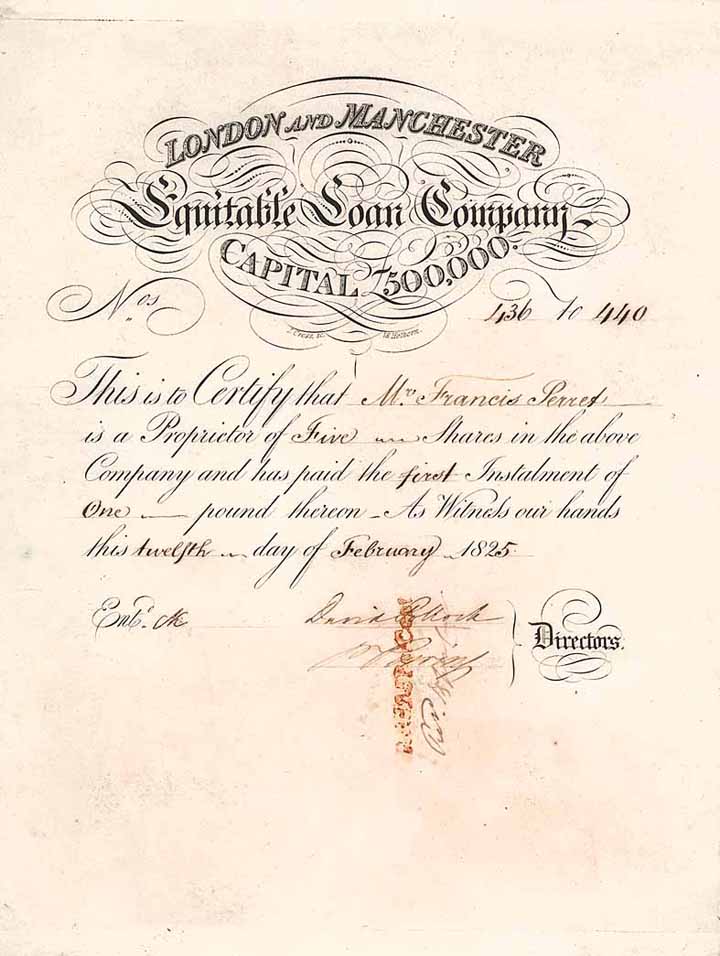 LONDON AND MANCHESTER
Equitable Loan Company
CAPITAL £500,000.
Nos 436 to 440
This is to Certify that Mr. Francis Perret
is a Proprietor of Five Shares in the above
Company and has paid the first Instalment of
One pound thereon As Witness our hands
this twelfth day of February 1825
Entd.
David Pollock
Directors.